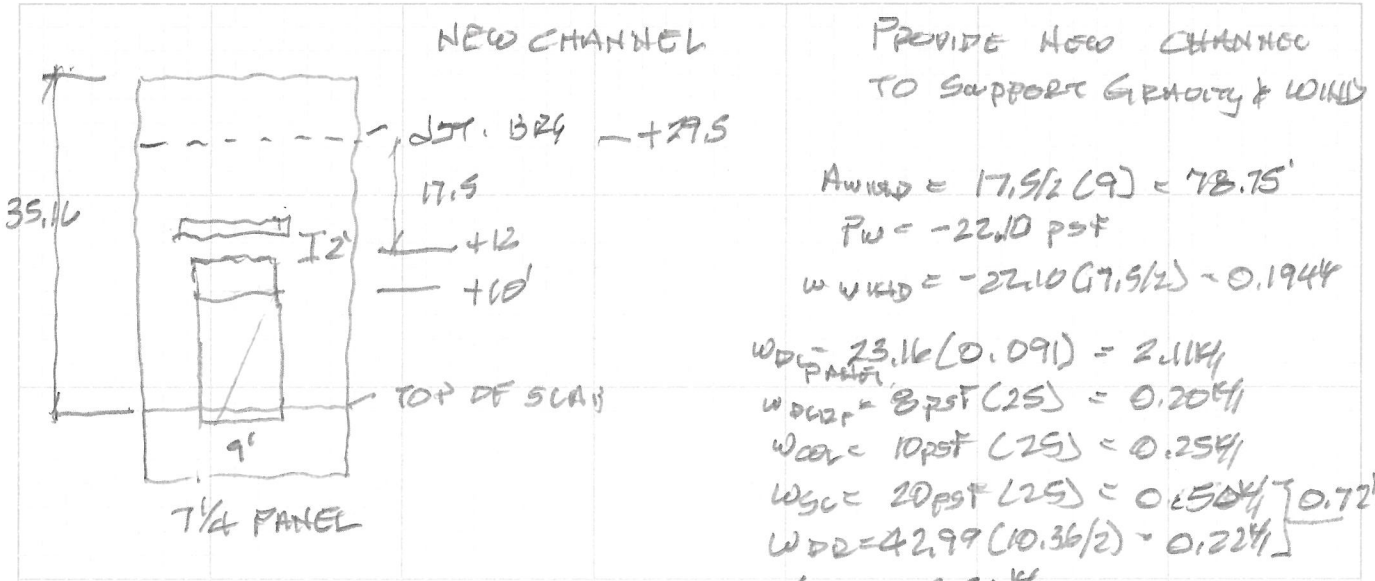 NEW CHANNEL
35.16
JST. BRG - +29.5
17.5
I 2'
+12
+10'
TOP OF SLAB
9'
7 1/4 PANEL
PROVIDE NEW CHANNEL
TO SUPPORT GRAVITY & WIND
AWIND = 17.5/2 (9) = 78.75'
PW = -22.10 psf
w WIND = -22.10 (17.5/2) - 0.194 k/
wDL PANEL = 23.16 (0.091) = 2.11 k/1
= 8 psf (25) = 0.20 k/1
wCOL = 10 psf (25) = 0.25 k/1
wSL = 20 psf (25) = 0.50 k/1 0.72
wDR = 42.99 (10.36/2) - 0.22 k/1